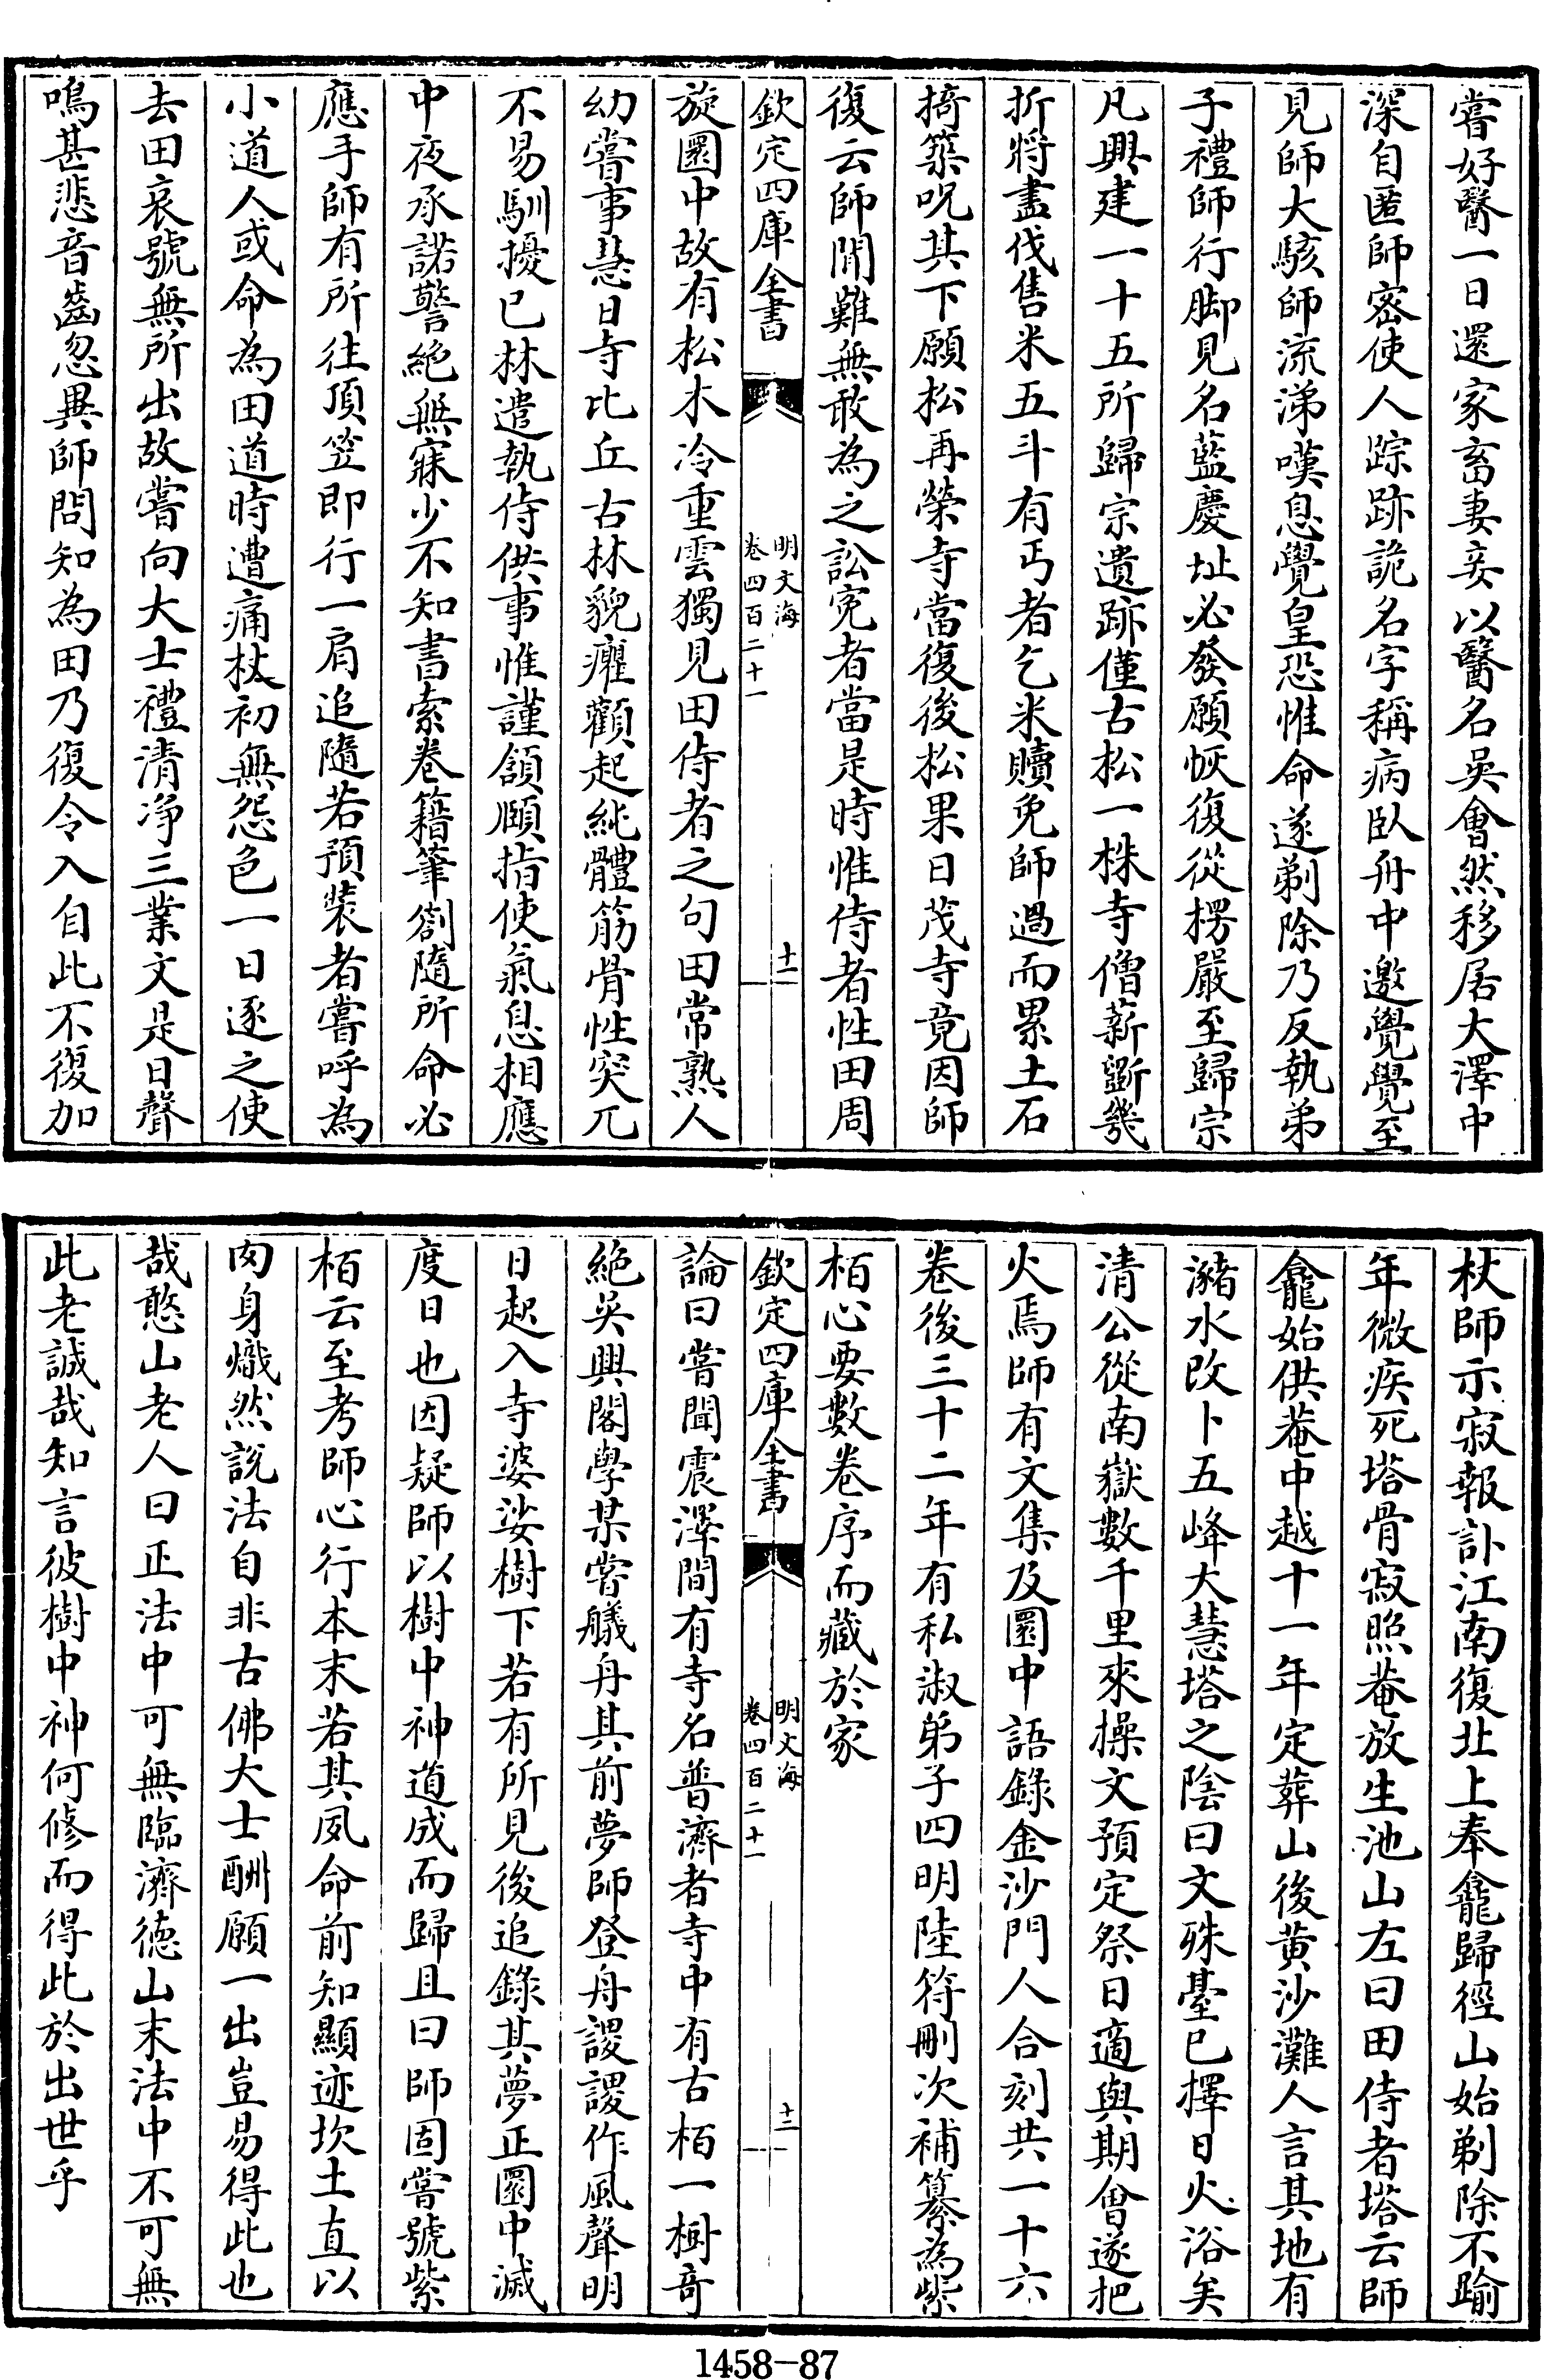 嘗好醫一日還家畜妻妾以醫名吳會然移居大澤中
深自匿師密使人踪跡詭名字稱病臥舟中邀覺覺至
見師大駭師流涕嘆息覺皇恐惟命遂剃除乃反執弟
子禮師行脚見名藍慶址必發願恢復從楞嚴至歸宗
凡興建一十五所歸宗遺跡僅古松一株寺僧薪斵㡬
折將盡伐售米五斗有丐者乞米贖免師過而累土石
掎築呪其下願松再榮寺當復後松果日茂寺竟因師
復云師閒難無敢為之訟寃者當是時惟侍者性田周
欽定四庫全書
明文海
卷四百二十一
十一
旋圜中故有松木冷重雲獨見田侍者之句田常熟人
幼嘗事慧日寺比丘古林貌癯顴起純體筋骨性突兀
不易馴擾已林遣執侍供事惟謹頷頤指使氣息相應
中夜承諾警絶無寐少不知書索卷籍筆劄隨所命必
應手師有所往頂笠即行一肩追隨若預裝者嘗呼為
小道人或命為田道時遭痛杖初無怨色一日逐之使
去田哀號無所出故嘗向大士禮清净三業文是日聲
鳴甚悲音齒忽異師問知為田乃復令入自此不復加
杖師示寂報訃江南復北上奉龕歸徑山始剃除不踰
年微疾死塔骨寂照菴放生池山左曰田侍者塔云師
龕始供菴中越十一年定葬山後黄沙灘人言其地有
瀦水改卜五峰大慧塔之陰曰文殊臺已擇日火浴矣
清公從南嶽數千里來操文預定祭日適與期會遂把
火焉師有文集及圜中語錄金沙門人合刻共一十六
卷後三十二年有私淑弟子四明陸符刪次補纂為紫
栢心要數卷序而藏於家
欽定四庫全書
明文海
卷四百二十一
十二
論曰嘗聞震澤間有寺名普濟者寺中有古栢一樹竒
絶吳興閣學某嘗艤舟其前夢師登舟謖謖作風聲明
日起入寺婆娑樹下若有所見後追錄其夢正圜中滅
度日也因疑師以樹中神道成而歸且曰師固嘗號紫
栢云至考師心行本末若其夙命前知顯迹坎土直以
肉身熾然說法自非古佛大士酬願一出豈易得此也
哉憨山老人曰正法中可無臨濟德山末法中不可無
此老誠哉知言彼樹中神何修而得此於出世乎
1458-87